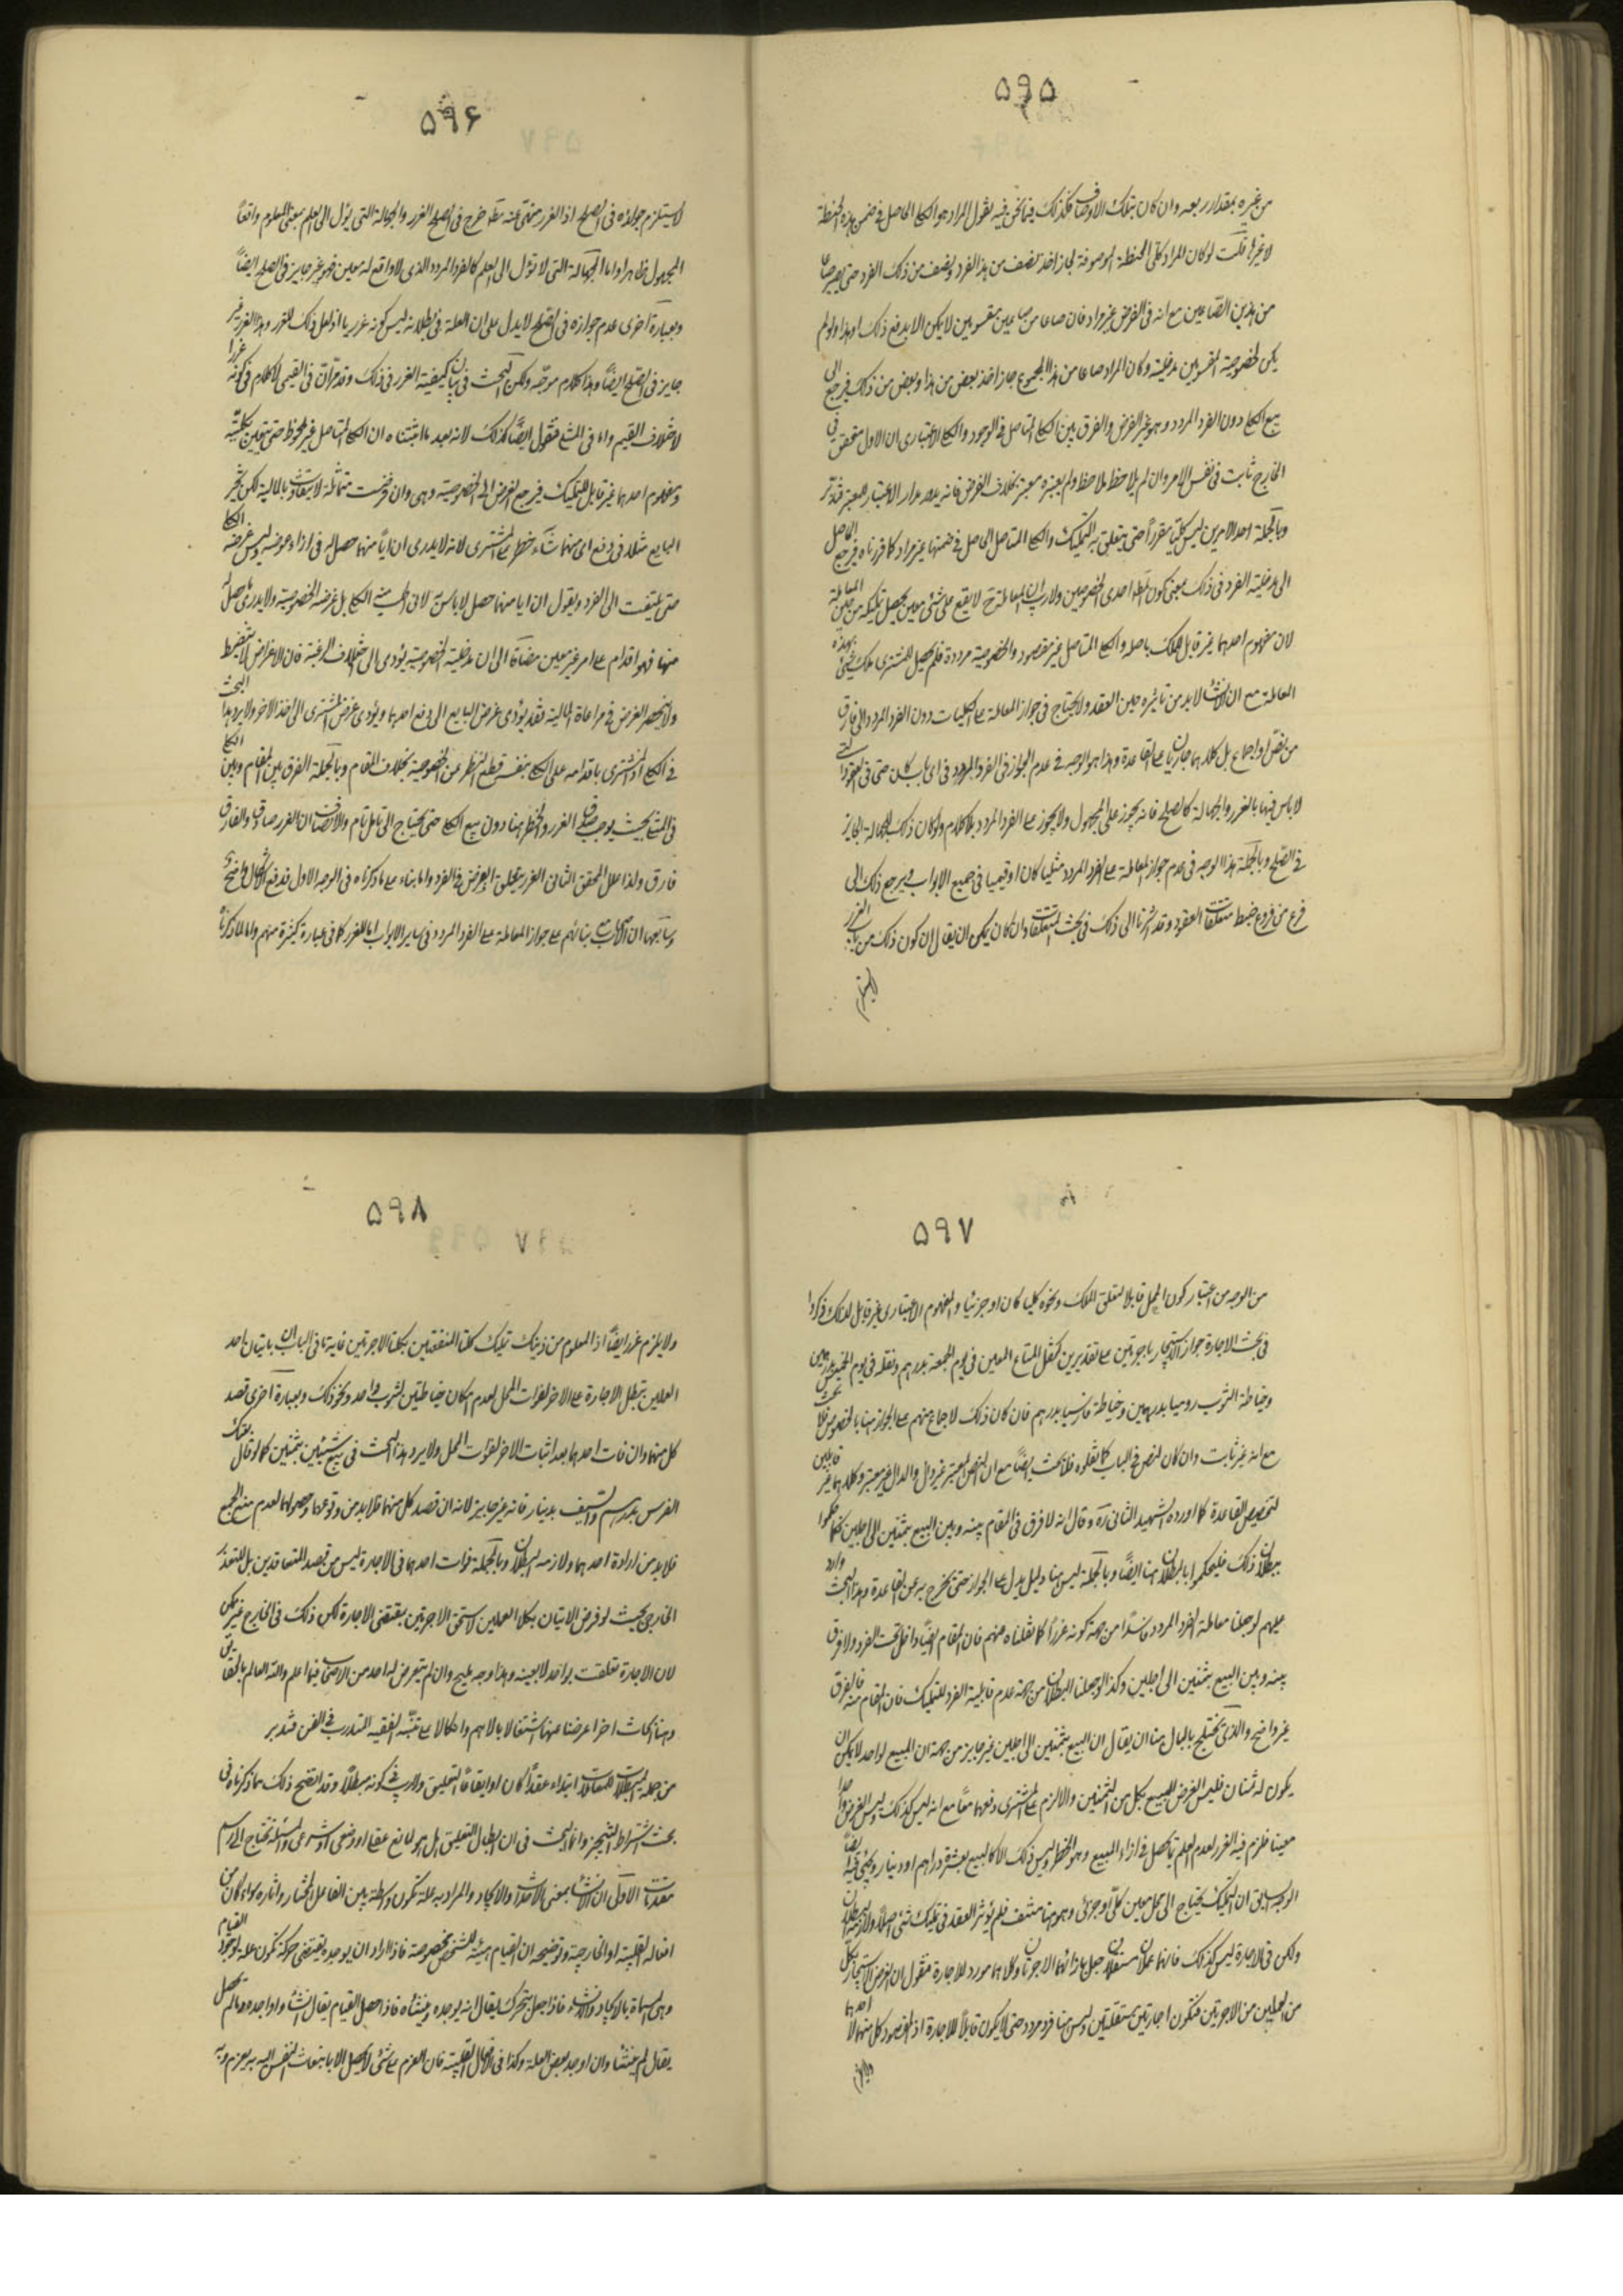 ۵۹۵
من غيره بمقدار ربعه وان كان بتلك الاوصاف فكذلك فيما نحن فيه يقول المراد هو الكلى الحاصل فى ضمن هذه الحنطة
لا غيرها قلت لو كان المراد كلى الحنطة الموصوفة لجاز اخذ نصف من هذا الفرد ونصف من ذلك الفرد حتى يصير صاعا
من هذين الصاعين مع انه فى الفرض غير مراد فان صاعا من صاعين مقسومين لا يمكن الا بدفع ذلك او هذا ولو لم
يكن لخصوصية المقسومين مدخلية وكان المراد صاعا من هذا المجموع جاز اخذ بعض من هذا وبعض من ذلك فيرجع الى
بيع الكلى دون الفرد المردد وهو غير الفرض والفرق بين الكلى المتاصل فى الوجود والكلى الاعتبارى ان الاول متحقق فى
الخارج ثابت فى نفس الامر وان لم يلاحظ ملاحظ ولم يعتبره معتبر بخلاف الفرض فانه يدور مدار الاعتبار المعتبر فتدبر
وبالجملة احد الامرين ليس كليا مقررا حتى يتعلق به التمليك والكلى المتاصل الحاصل فى ضمنهما غير مراد كما قررناه فيرجع الحاصل
الى مدخلية الفرد فى ذلك بمعنى كون احدى الخصوصيتين ولا ريب ان المعاملة ح لا يقع على شئ معين يحصل تمليكه من حين المعاملة
لان مفهوم احدهما غير قابل للملك باصله والكلى المتاصل غير مقصود والخصوصية مرددة فلم يحصل للمشترى ملك شئ بهذه
المعاملة مع ان الانشاء لابد من تاثيره حين العقد ولا يحتاج فى جواز المعاملة على الكليات دون الفرد المردد الى فارق
من نص او اجماع بل كلاهما جاريان على القاعدة وهذا هو الوجه فى عدم الجواز فى الفرد المردد فى اى باب كان حتى فى العقود التى
لا باس فيها بالغرر والجهالة كالصلح فانه يجوز على المجهول ولا يجوز على الفرد المردد بلا كلام ولو كان ذلك للجهالة لجاز
فى الصلح وبالجملة هذا الوجه فى عدم جواز المعاملة على الفرد المردد مثليا كان او قيميا فى جميع الابواب ويرجع ذلك الى
فرع من فروع ضبط متعلقات العقود وقد اشرنا الى ذلك فى بحث المتعلقات وان كان يمكن ان يقال ان كون ذلك من باب الغرر
لا يستلزم
۵۹۶
لا يستلزم جوازه فى الصلح اذ الغرر منهى عنه خرج فى الصلح الغرر والجهالة التى يؤل الى العلم بمعنى المعلوم واقعا
المجهول ظاهرا واما الجهالة التى لا تؤل الى العلم كالفرد المردد الذى لا واقع له معين فهو غير جايز فى الصلح ايضا
وبعبارة اخرى عدم جوازه فى الصلح لا يدل على ان العلة فى بطلانه ليس كونه غرريا اذ لعل ذلك للغرر وهذا الغرر غير
جايز فى الصلح ايضا وهذا كلام موجه ولكن البحث فى بيان كيفية الغرر فى ذلك وقد مر ان فى القيمى لا كلام فى كونه غررا
لاختلاف القيم واما فى المثلى فنقول ايضا كذلك لانه بعد ما اثبتناه ان الكلى المتاصل غير ملحوظ حتى يتعين بكليته
ومفهوم احدهما غير قابل للتمليك فيرجع الغرض الى الخصوصية وهى وان فرضت متماثلة لا يتفاوت بالمالية لكن تخير
البايع مثلا فى دفع اى منهما شاء خطر على المشترى لانه لا يدرى ان ايا منهما حصل له فى ازاء عوضه وليس غرضه الكلى
حتى يلتفت الى الفرد ويقول ان ايا منهما حصل لا باس لانى الكلى بل غرضه الخصوصية ولا يدرى ما حصل له
منهما فهو اقدام على امر غير معين مضافا الى ان مدخلية الخصوصية يؤدى الى اختلاف الرغبة فان الاغراض لا تنضبط
ولا ينحصر الغرض فى مراعاة المالية فقد يؤدى غرض البايع الى دفع احدهما ويؤدى غرض المشترى الى اخذ الاخر ولا يرد هذا البحث
فى الكلى اذ المشترى باقدامه على الكلى بنفسه قطع النظر عن الخصوصية بخلاف المقام وبالجملة الفرق بين المقام وبين الكلى
فى المثلى بحيث يوجب صدق الغرر والخطر هنا دون بيع الكلى حتى يحتاج الى تامل تام والانصاف ان الغرر صادق والفارق
فارق ولذا علل المحقق الثانى الغرر بتعلق الغرض فى الفرد واما بناء على ما ذكرناه فى الوجه الاول فدفع الاشكال واضح
وسابعها ان الاصحاب بنائهم على جواز المعاملة على الفرد المردد فى ساير الابواب اما للغرر كما فى عبارة كثيرة منهم واما لما ذكرناه
۵۹۷
من الوجه من اعتبار كون المحل قابلا لتعلق الملك ونحوه كليا كان او جزئيا والمفهوم الاعتبارى غير قابل لذلك وذكروا
فى بحث الاجارة جواز الاستيجار باجرتين على تقديرين كنقل المتاع المعين فى يوم الجمعة بدرهم ونقله فى يوم الخميس بدرهمين
وخياطة الثوب روميا بدرهمين وخياطة فارسيا بدرهم فان كان ذلك لاجماع منهم على الجواز هنا بالخصوص فلا بحث
مع انه غير ثابت وان كان لنص فى الباب كما نقلوه فلا بحث ايضا مع ان النص المعتبر غير دال والدال غير معتبر وكلاهما غير قابلين
لتخصيص القاعدة كما اورده الشهيد الثانى ره وقال انه لا فرق فى المقام بينه وبين البيع بثمنين الى اجلين فكما حكموا
ببطلان ذلك فليحكموا بالبطلان هنا ايضا وبالجملة ليس هنا دليل يدل على الجواز حتى يخرج به عن القاعدة وهذا البحث وارد
عليهم لو جعلنا معاملة الفرد المردد فاسدا من جهة كونه غررا كما نقلناه عنهم فان المقام ايضا داخل تحت الفرد ولا فرق
بينه وبين البيع بثمنين الى اجلين وكذا لو جعلنا البطلان من جهة عدم قابلية الفرد للتمليك فان المقام منه فالفرق
غير واضح والذى يختلج بالبال هنا ان يقال ان البيع بثمنين الى اجلين غير جايز من جهة ان المبيع لواحد لا يمكن ان
يكون له ثمنان فليس الغرض المبيع بكل من الثمنين والا لزم على المشترى دفعهما معا مع انه ليس كذلك وليس الغرض واحدا
معينا فلزم فيه الغرر لعدم العلم بما يحصل فى ازاء المبيع وهو الخطر وليس ذلك الا كالبيع بعشرة دراهم او دينار ويجئ فيه ايضا
الوجه السابق ان التمليك يحتاج الى محل معين كلى او جزئى وهو هنا منتف فلم يؤثر العقد فى تمليك شئ اصلا ولازمه البطلان
ولكن فى الاجارة ليس كذلك فانهما عملان مستقلان جعل بازائهما الاجرتان وكلاهما مورد للاجارة فنقول ان الغرض الاستيجار بكل
من العملين من الاجرتين فتكون اجارتين مستقلتين وليس هنا فرد مردد حتى لا يكون قابلا للاجارة اذ المقصود كل منهما لا احدهما
ولا يلزم
۵۹۸
ولا يلزم غرر ايضا اذ المعلوم من ذينك تمليك كلتا المنفعتين بكلتا الاجرتين غاية ما فى الباب ان باتيان احد
العملين يبطل الاجارة على الاخر لفوات المحل لعدم امكان خياطتين لثوب واحد ونحو ذلك وبعبارة اخرى قصد
كل منهما وان فات احدهما بعد اثبات الاخر لفوات المحل ولا يرد هذا البحث فى بيع شيئين بثمنين كما لو قال بعتك
الفرس بدرهم والسيف بدينار فانه غير جايز لانه ان قصد كل منهما فلابد من وقوعهما وحصولهما لعدم منع الجمع
فلابد من ارادة احدهما ولازمه البطلان وبالجملة فوات احدهما فى الاجارة ليس من قصد المتعاقدين بل للتعذر
الخارجى بحيث لو فرض الاتيان بكلا العملين لاستحق الاجرتين بمقتضى الاجارة لكن ذلك فى الخارج غير ممكن
لان الاجارة تعلقت بواحد لا بعينه وهذا وجه مليح وان لم يتعرض له احد من الاصحاب فيما اعلم والله العالم بالحقايق
وهنا ابحاث اخر اعرضنا عنها اشتغالا بالاهم واحكالا على تنبه الفقيه المتدرب فى الفن فتدبر
من جملة المبطلات للمعاملات ابتداء عقدا كان او ايقاعا التعليق ولا ريب فى كونه مبطلا وقد اتضح ذلك مما ذكرناه فى
بحث اشتراط التنجيز وانما البحث فى ان ابطال التعليق هل هو لمانع عقلى او وضعى او شرعى والمسئلة تحتاج الى رسم
مقدمات الاولى ان الانشاء بمعنى الاحداث والايجاد والمراد به علة تكون واسطة بين الفاعل المختار واثاره سواء كان من
افعاله القلبية او الخارجية وتوضيحه ان القيام هيئة للشخص مخصوصة فاذا اراد ان يوجده يقتضى حركة تكون علة لوجود القيام
وهى المسماة بالايجاد والانشاء فاذا جعل يتحرك يقال انه يوجده وينشأه فاذا حصل القيام يقال انشأه واوجده وما لم يحصل
يقال لم ينشأ وان اوجد بعض العلة وكذا فى الافعال القلبية فان العزم على شئ لا يحصل الا بانبعاث النفس اليه به يعزم وبه